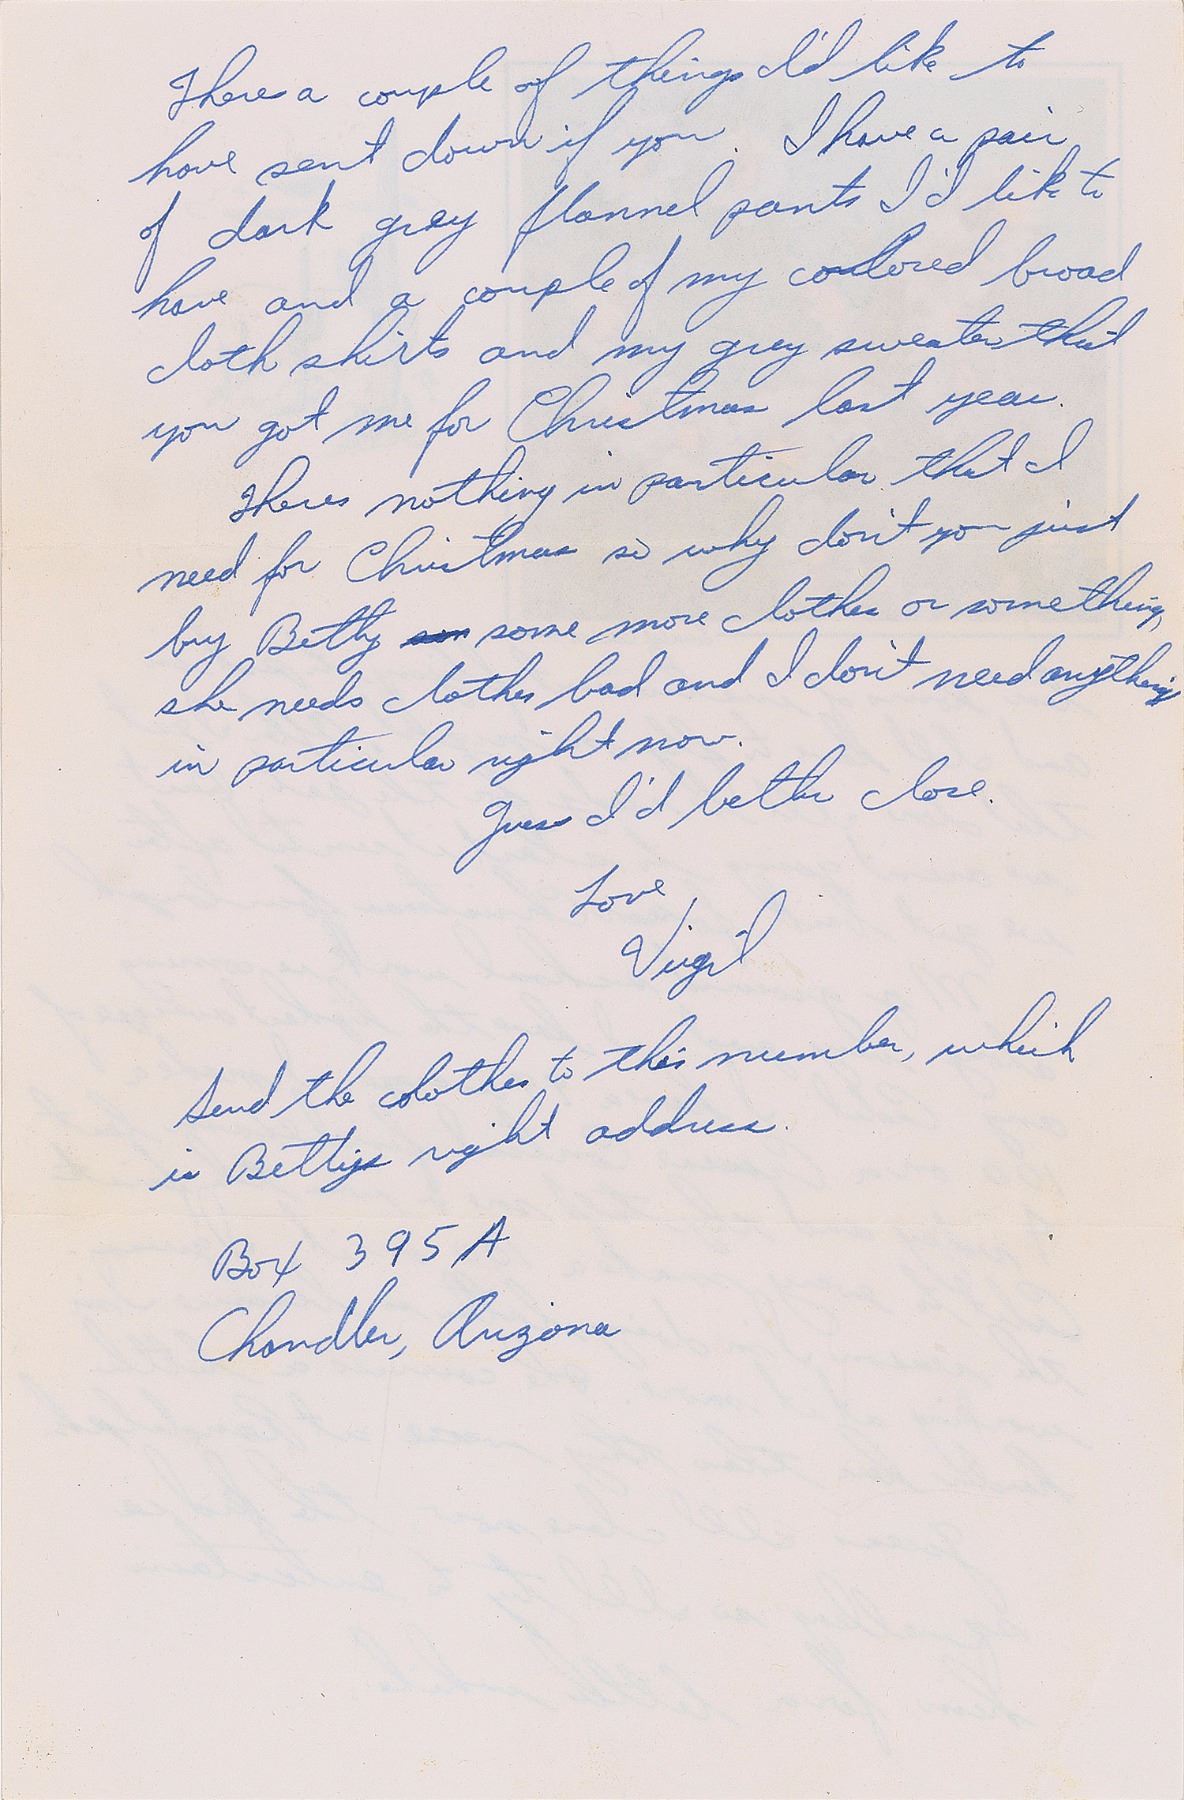 Theres a couple of things I'd like to
have sent down if you. I have a pair
of dark grey flannel pants I'd like to
have and a couple of my colored broad
cloth shirts and my grey sweater that
you got me for Christmas last year.
Theres nothing in particular that I
need for Christmas so why don't you just
buy Betty some more clothes or something,
she needs clothes bad and I don't need anything
in particular right now.
Guess I'd better close.
Love
Virgil
Send the clothes to this number, which
is Bettys right address.
Box 395A
Chandler, Arizona